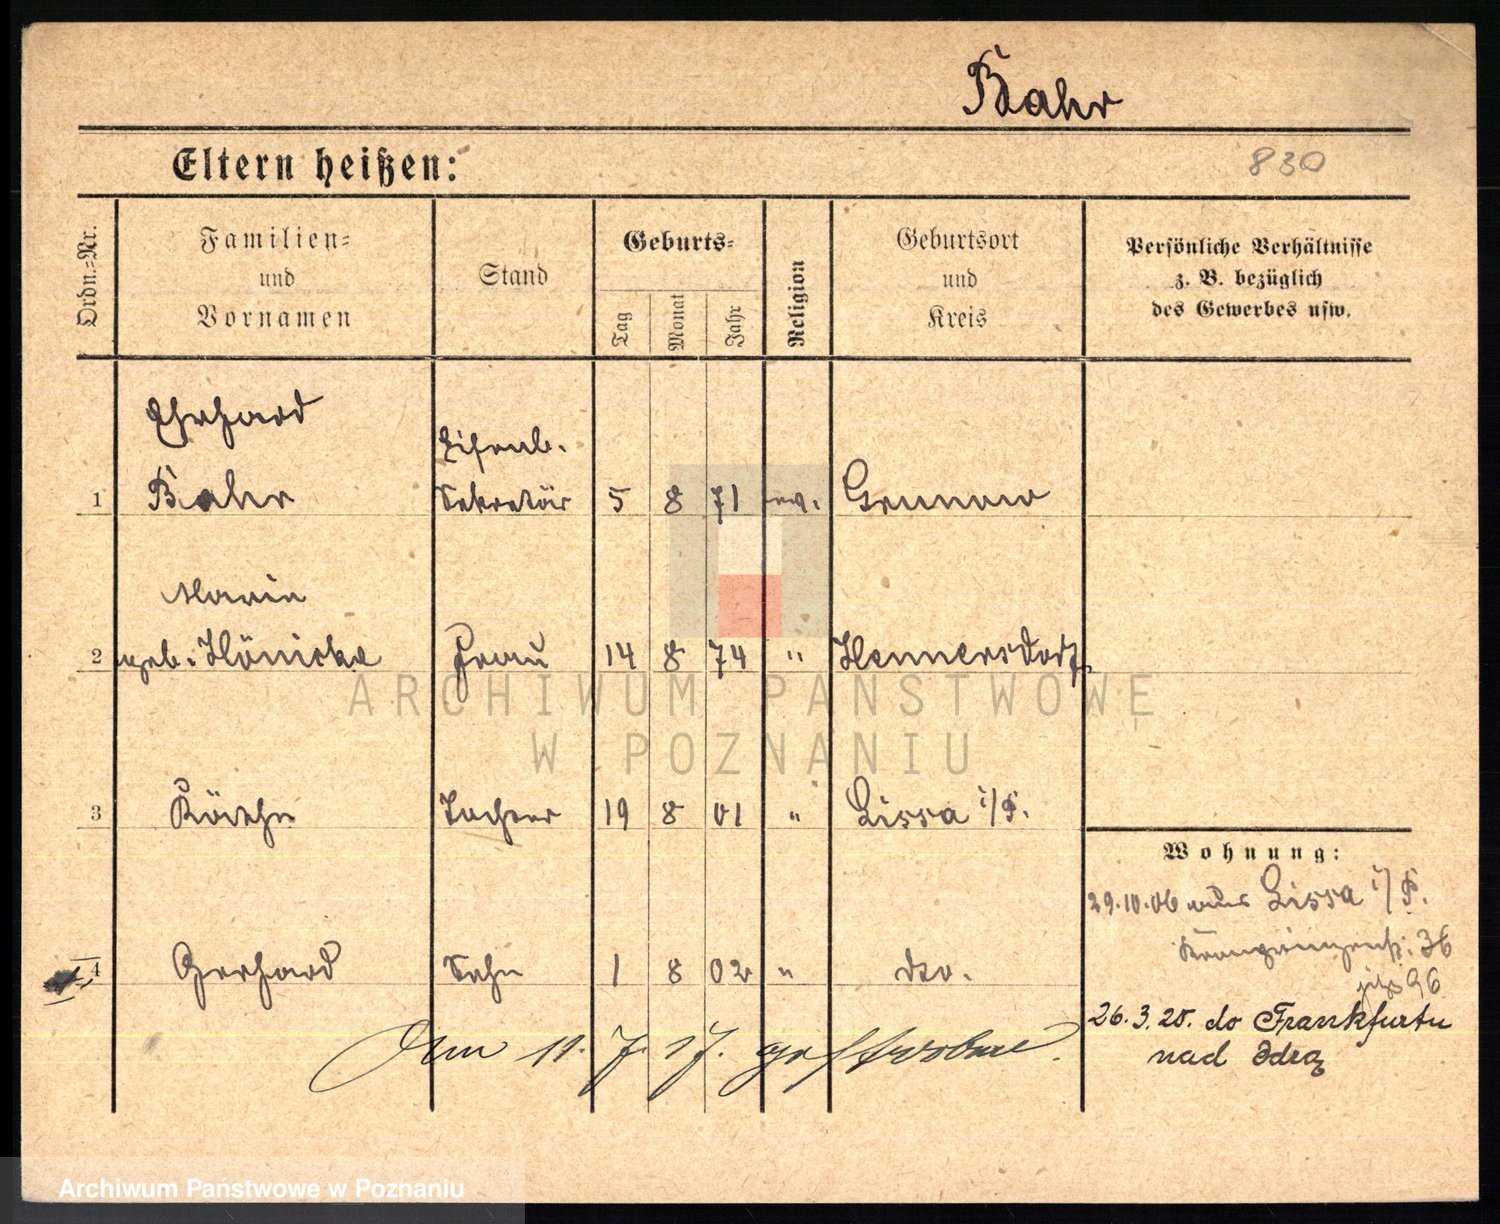 Bahr
Eltern heißen:
830
Ordn.-Nr.
Familien-
und
Vornamen
Stand
Geburts-
Tag
Monat
Jahr
Religion
Geburtsort
und
Kreis
Persönliche Verhältnisse
z. B. bezüglich
des Gewerbes usw.
Ehrhard
Eisenb.
1 Bahr Sekretär 5 8 71 ev. Grunow
Marie
2 geb. Hönicke Frau 14 8 74 " Hennersdorf
3 Käthe Tochter 19 8 01 " Lissa i/P.
Wohnung:
29.10.06 aus Lissa i/P.
Kronprinzenstr. 36
jetzt 96
4 Gerhard Sohn 1 8 02 " do.
26.3.20. do Frankfurtu
nad Odrą
Am 11. 7. 17. gestorben.
ARCHIWUM PAŃSTWOWE
W POZNANIU
Archiwum Państwowe w Poznaniu